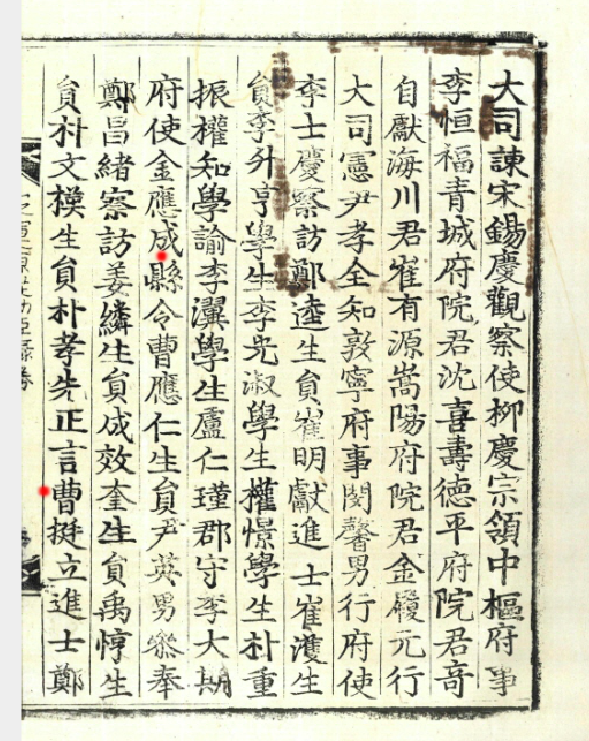 大司諫宋錫慶觀察使柳慶宗領中樞府事
李恒福靑城府院君沈喜壽德平府院君奇
自獻海川君崔有源嵩陽府院君金履元行
大司憲尹孝全知敦寧府事閔馨男行府使
李士慶察訪鄭逵生員崔明獻進士崔濩生
員李升亨學生李光淑學生權憬學生朴重
振權知學諭李瀷學生盧仁瑾郡守李大期
府使金應成縣令曹應仁生員尹英男參奉
鄭昌緖察訪姜繗生員成效奎生員禹惇生
員朴文㮨生員朴孝先正言曹挺立進士鄭